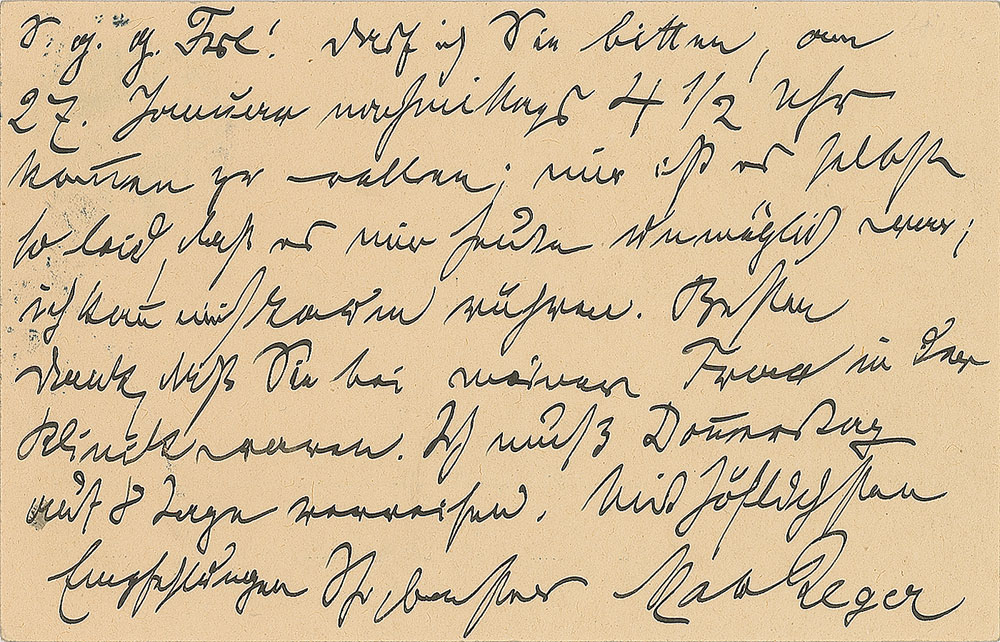 S. g. g. Frl! Darf ich Sie bitten, am
27. Januar nachmittags 4 1/2 Uhr
kom̅en zu wollen; mir ist es selbst
so leid, daß es mir heute unmöglich war;
ich kan̅ mich kaum rühren. Besten
Dank, daß Sie bei meiner Frau in der
Klinik waren. Ich muß Don̅erstag
auf 8 Tage verreisen. Mit höflichsten
Empfehlungen Ihr Max Reger